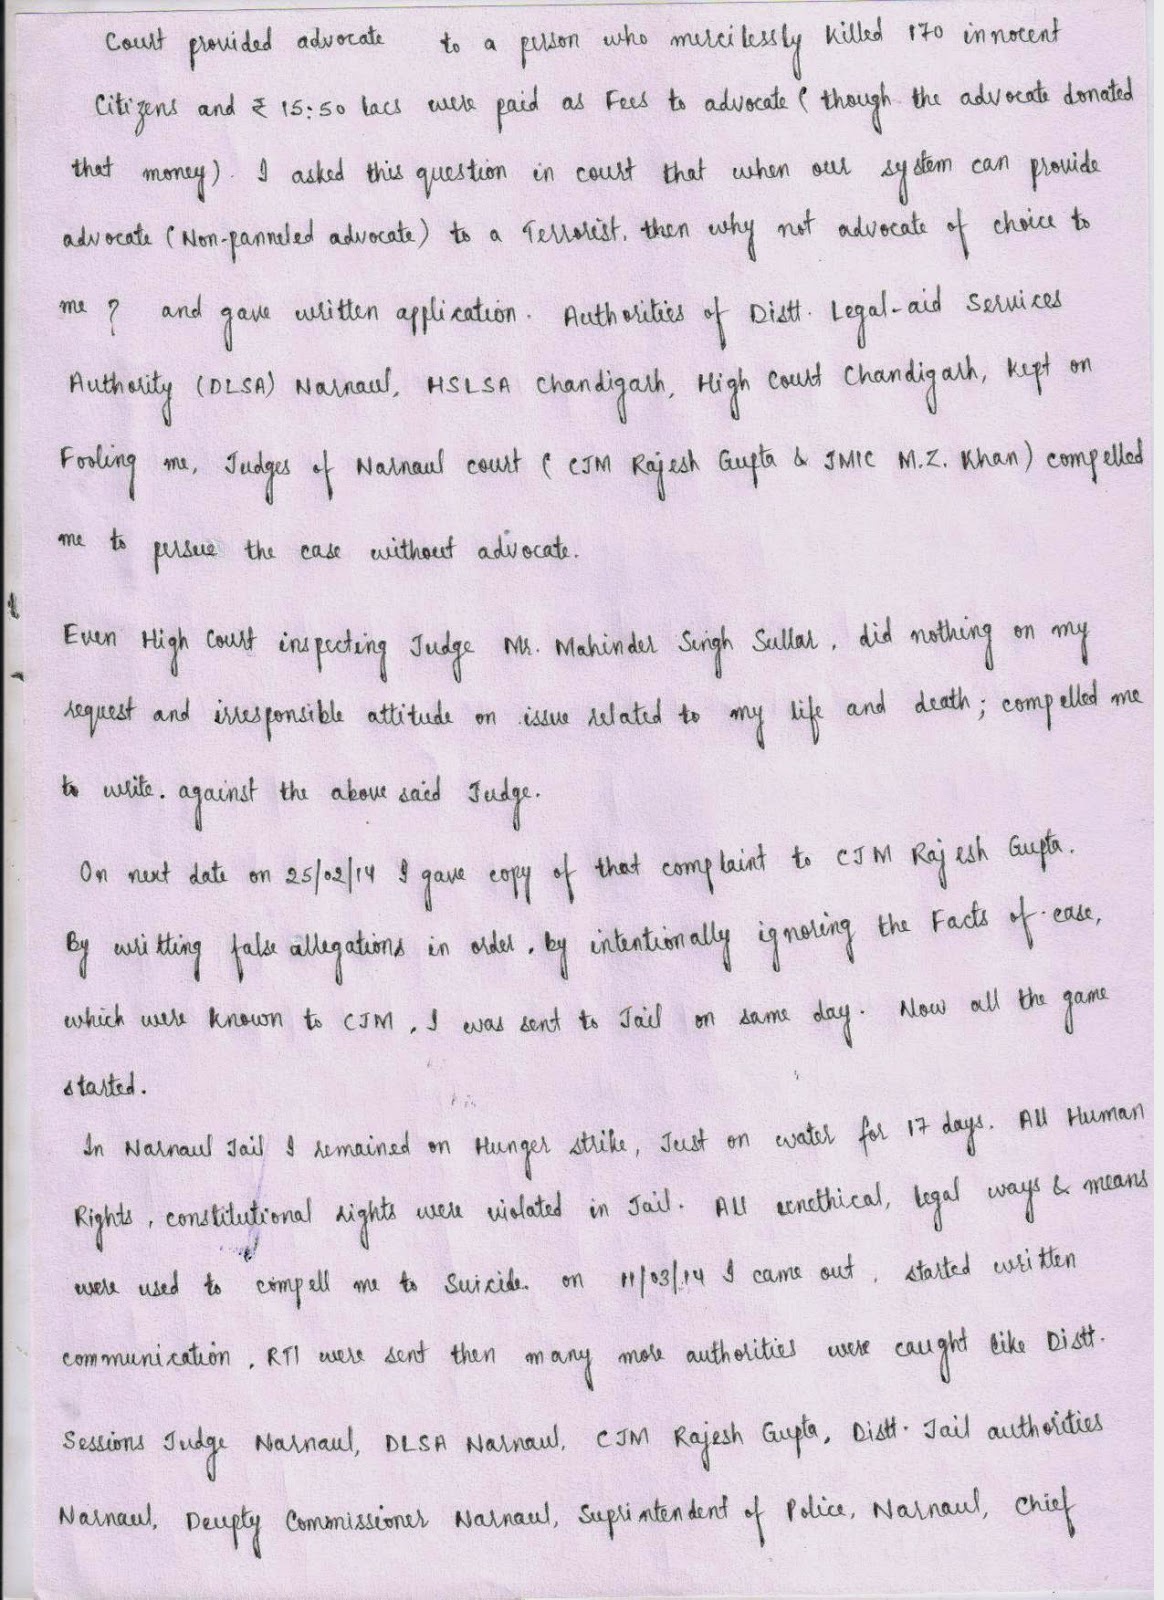 Court provided advocate to a person who mercilessly killed 170 innocent
Citizens and ₹ 15:50 lacs were paid as Fees to advocate ( though the advocate donated
that money). I asked this question in court that when our system can provide
advocate (Non-panneled advocate) to a Terrorist, then why not advocate of choice to
me ? and gave written application. Authorities of Distt. Legal-aid Services
Authority (DLSA) Narnaul, HSLSA Chandigarh, High Court Chandigarh, kept on
Fooling me, Judges of Narnaul court ( CJM Rajesh Gupta & JMIC M.Z. Khan) compelled
me to persue the case without advocate.
Even High Court inspecting Judge Mr. Mahinder Singh Sullar, did nothing on my
request and irresponsible attitude on issue related to my life and death; compelled me
to write. against the above said Judge.
On next date on 25/02/14 I gave copy of that complaint to CJM Rajesh Gupta.
By writting false allegations in order, by intentionally ignoring the Facts of case,
which were known to CJM, I was sent to Jail on same day. Now all the game
started.
In Narnaul Jail I remained on Hunger strike, Just on water for 17 days. All Human
Rights, constitutional rights were violated in Jail. All unethical, legal ways & means
were used to compell me to Suicide. on 11/03/14 I came out, started written
communication, RTI were sent then many more authorities were caught like Distt.
Sessions Judge Narnaul, DLSA Narnaul, CJM Rajesh Gupta, Distt. Jail authorities
Narnaul, Deupty Commissioner Narnaul, Suprintendent of Police, Narnaul, Chief